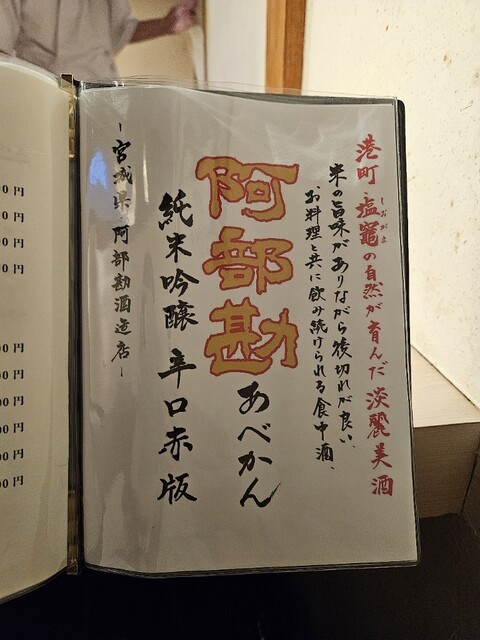 港町・塩竈の自然が育んだ淡麗美酒
しおがま
米の旨味がありながら後切れが良い、
お料理と共に飲み続けられる食中酒、
阿部勘
あべかん
純米吟醸 辛口赤版
-宮城県・阿部勘酒造店-
00円
00円
00円
00円
00円
00円
00円
00円
00円
00円